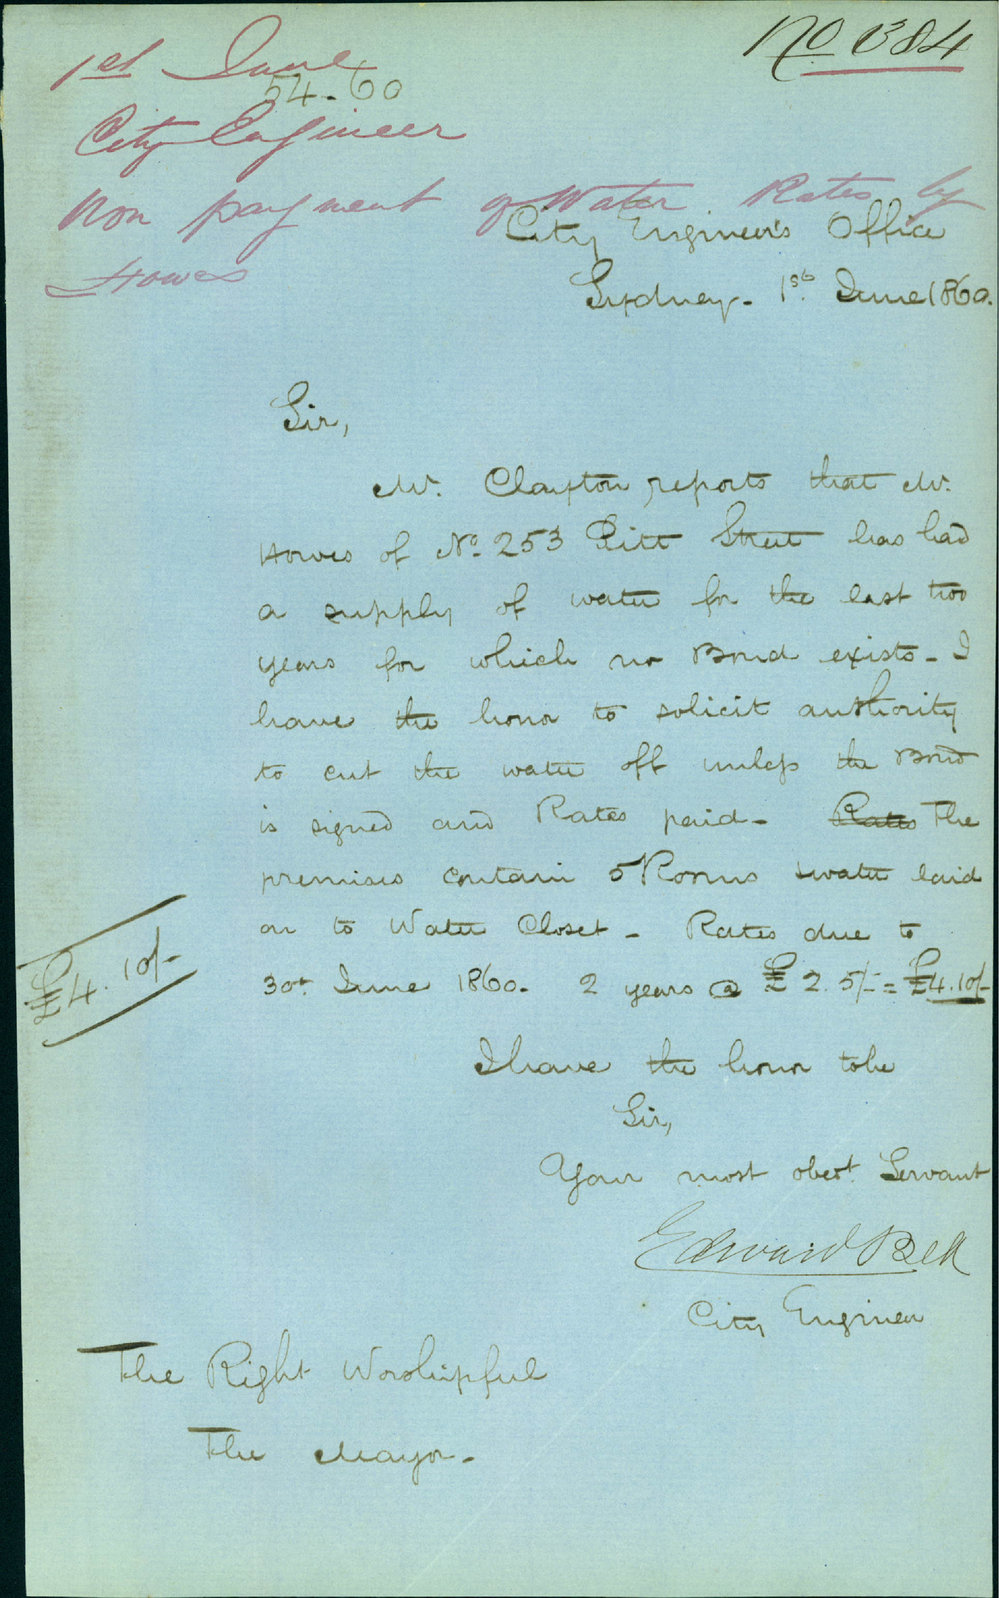 No 384
1st June
54-60
City Engineer
Non payment of Water Rates by
Howes
City Engineer's Office
Sydney - 1st June 1860.
Sir,
Mr. Clayton reports that Mr.
Howes of No 253 Pitt Street has had
a supply of water for the last two
years for which no Bond exists - I
have the honor to solicit authority
to cut the water off unless the Bond
is signed and Rates paid - Rates The
premises contain 5 Rooms & water laid
on to Water Closet - Rates due to
30th June 1860. 2 years @ £2.5/- = £4.10/-
£4.10/-
I have the honor to be
Sir,
Your most obedt. Servant
Edward Bell
City Engineer
The Right Worshipful
The Mayor -